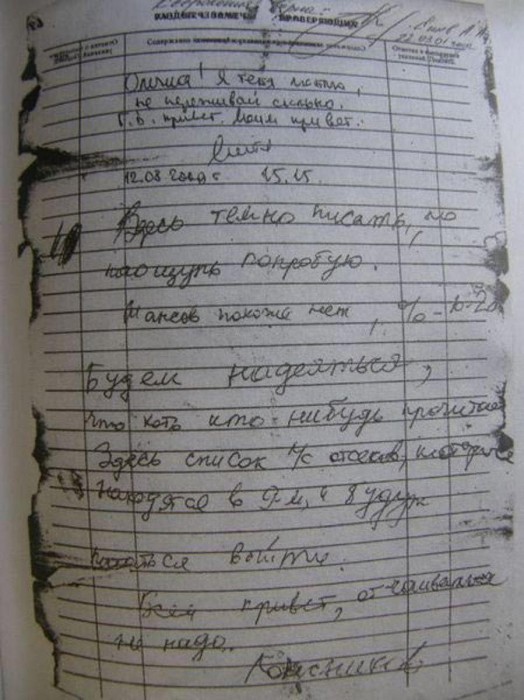 ПРОВЕРЯЮЩИХ
Олечка! Я тебя люблю,
не переживай сильно.
Г.В. привет. Моим привет.
12.08.2000 г 15.15.
Здесь темно писать, но
наощупь попробую.
Шансов похоже нет, %-10-20
Будем надеяться,
что хоть кто-нибудь прочитает
Здесь список л/с отсеков, которые
находятся в 9-м, и будут
пытаться выйти.
Всем привет, отчаиваться
не надо.
Колесников